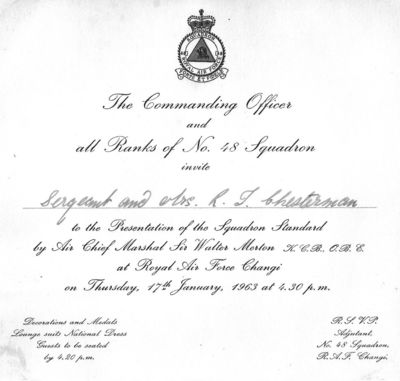 SQUADRON
48
ROYAL AIR FORCE
FORTE ET FIDELE
The Commanding Officer
and
all Ranks of No. 48 Squadron
invite
Sergeant and Mrs. R. J. Chesterman
to the Presentation of the Squadron Standard
by Air Chief Marshal Sir Walter Merton K.C.B., O.B.E.
at Royal Air Force Changi
on Thursday, 17th January, 1963 at 4.30 p.m.
Decorations and Medals
Lounge suits National Dress
Guests to be seated
by 4.20 p.m.
R.S.V.P.
Adjutant,
No. 48 Squadron,
R.A.F. Changi,